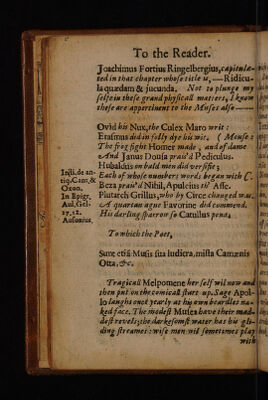 To the Reader.
Joachimus Fortius Ringelbergius, capitula-
ted in that chapter whose title is, — Ridicu-
la quædam & jucunda. Not to plunge my
selfe in these grand physicall matters, I know
these are appertinent to the Muses also
Ovid his Nux, the Culex Maro writ:
Erasmus did in folly dye his wit.
The frog fight Homer made, and of dame
Muse:
And Janus Dousa prais'd Pediculus.
Hubaldus on bald men did versifie;
Each of whose numbers words began with C.
Beza prais'd Nihil, Apuleius th' Asse.
Plutarch Grillus, who by Circe changed was.
A quartan ague Favorine did commend.
His darling sparrow so Catullus pend,
Insti. de an-
tiq. Cant. &
Oxon.
In Epigr.
Aul. Gel.
17.12.
Ausonius.
To which the Poet,
Sunt etiā Musis sua ludicra, mista Camænis
Otia, &c.
Tragicall Melpomene her self wil now and
then put on the comicall start-up. Sage Apol-
lo laughs once yearly at his own beardles na-
ked face. The modest Muses have their mad-
dest revels; the darksomst water has his gli-
ding streames: wise men wil sometimes play
with